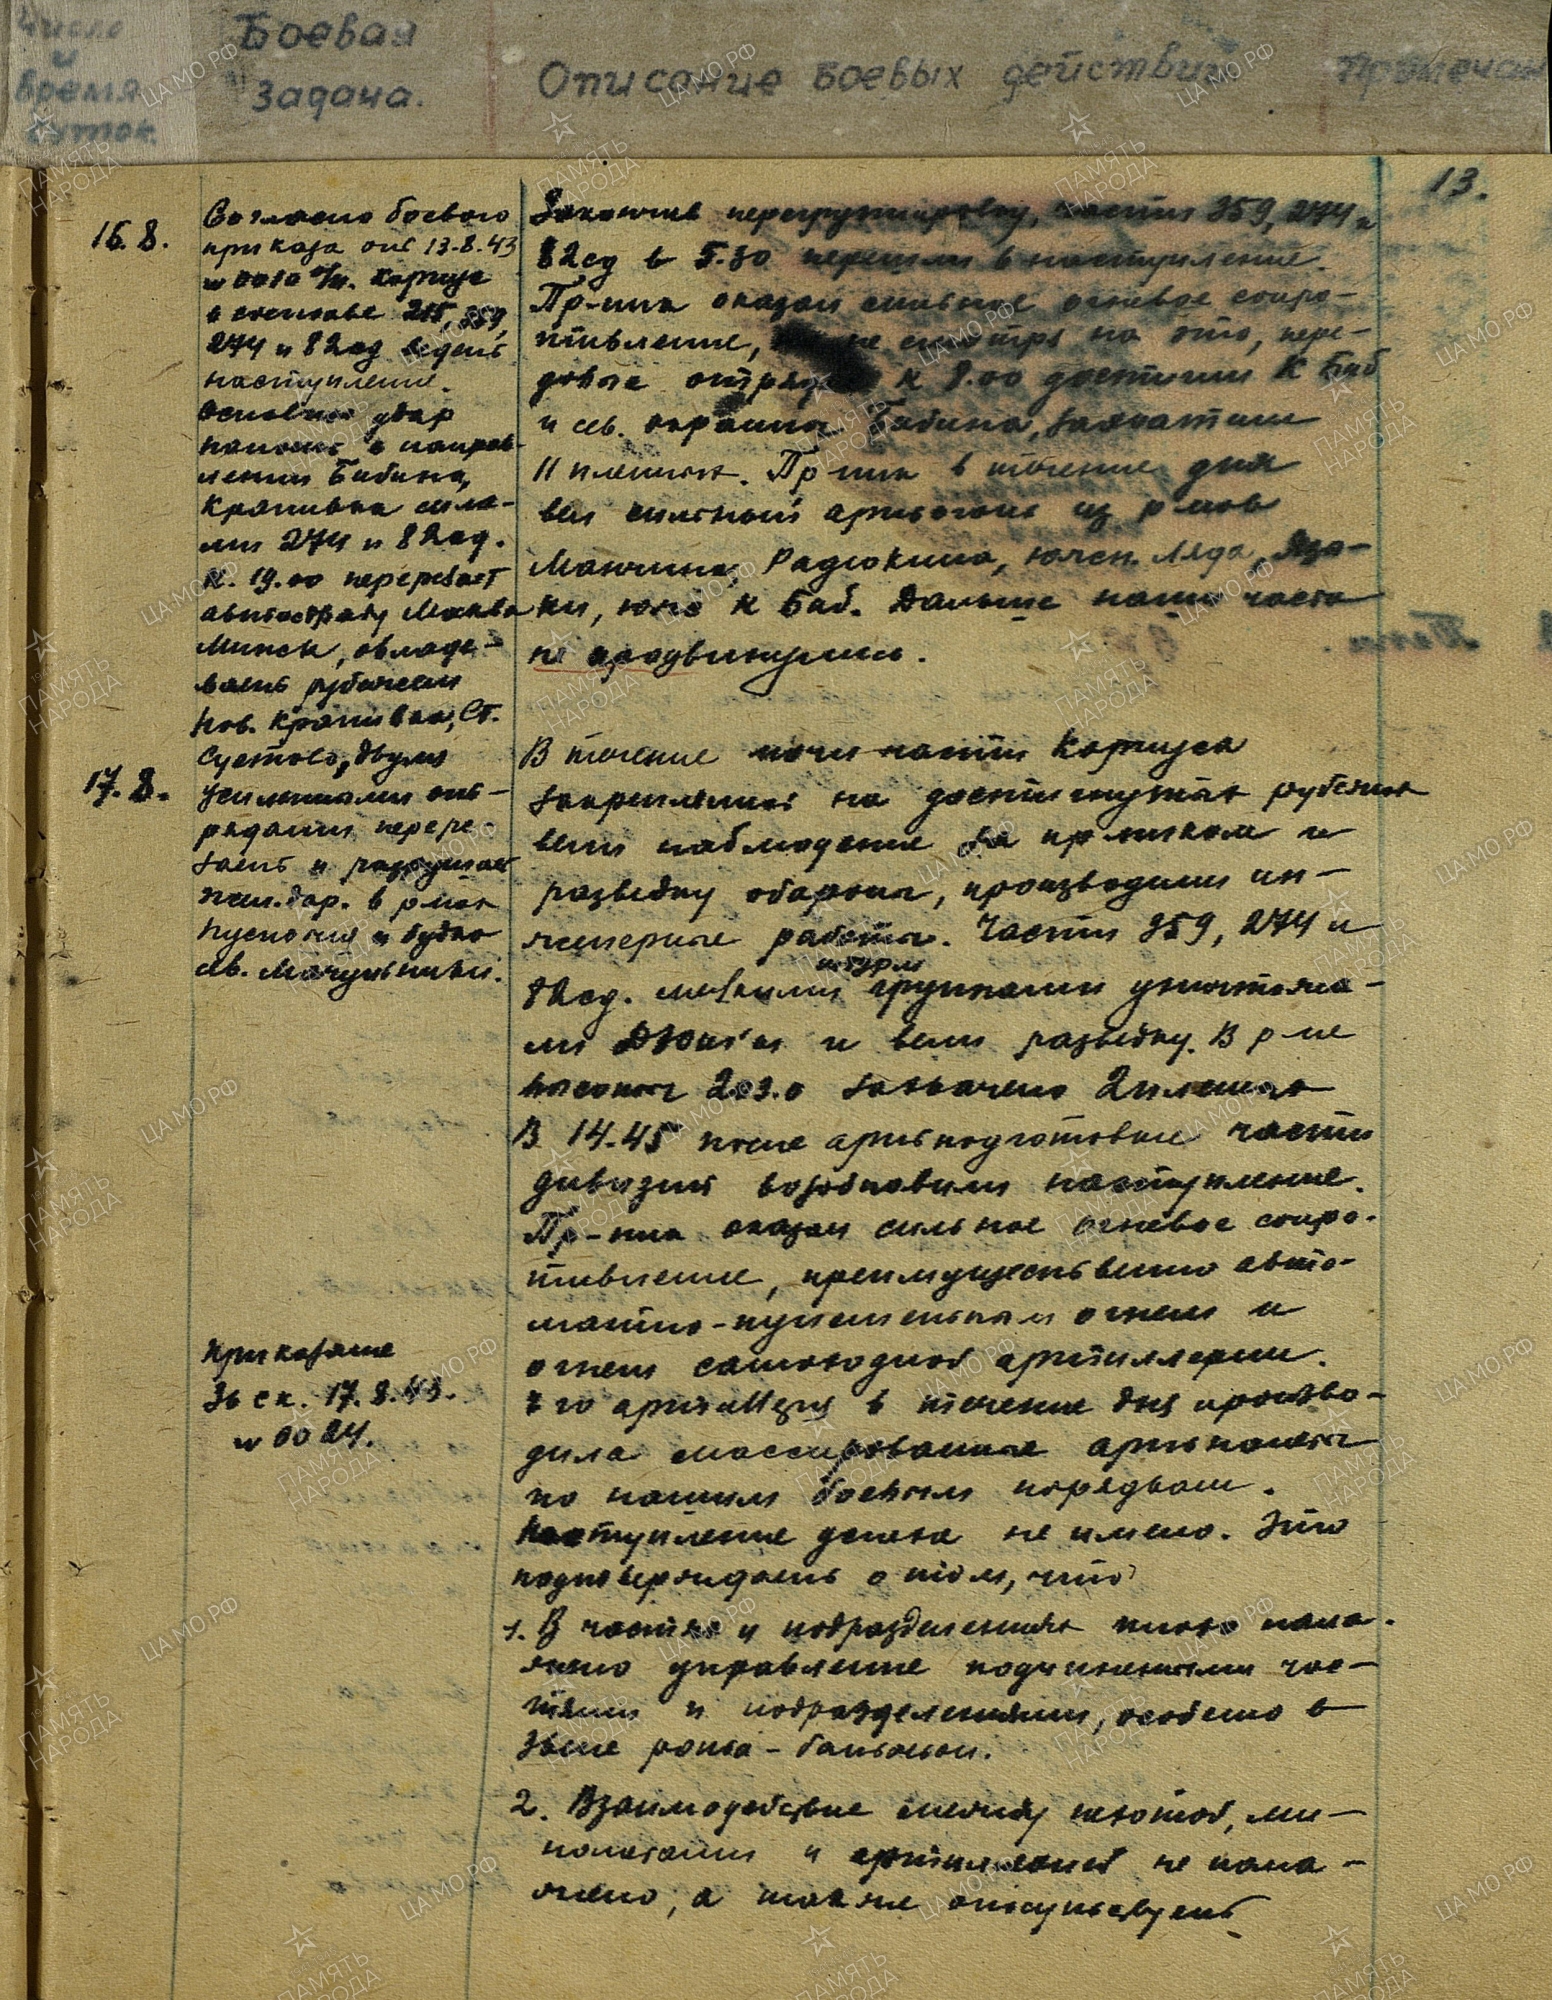 Число и время суток.
Боевая задача.
Описание боевых действий
Примечан
13.
16.8.
Согласно боевого
приказа от 13.8.43
№ 0010 п/п. Корпус
в составе 215, 359,
274 и 82 сд ведет
наступление.
Основной удар
наносит в направ-
лении Бабина,
Крапивка сила-
ми 274 и 82 сд.
К. 19.00 перерезает
автостраду Москва
Минск, овладе-
вает рубежем
Нов. Крапивка, Ст.
Суетово, двумя
усиленными от-
рядами перере-
зает и разрушает
жел.дор. в р-нах
Пускония и будка
св. Мачульники.
Закончив перегруппировку, части 359, 274 и
82 сд в 5.30 перешли в наступление.
Пр-ник оказал сильное огневое сопро-
тивление, не смотря на это, пере-
довые отряды к 8.00 достигли К Баб
и св. окраины Бабина, захватили
11 пленных. Пр-ник в течение дня
вел сильный артогонь из р-нов
Манчина, Радюкина, южн. Ляда,
ки, южн К Баб. Дальше наши части
не продвинулись.
17.8.
В течение ночи части Корпуса
закреплялись на достигнутых рубежах
вели наблюдение за пр-ником и
разведку обороны, производили ин-
женерные работы. Части 359, 274 и
штурм
82 сд. мелкими группами уничтожа-
ли ДЗОТ'ы и вели разведку. В р-не
высоты 203.0 захвачено 2 пленных
В 14.45 после артподготовки части
дивизий возобновили наступление.
Пр-ник оказал сильное огневое сопро-
тивление, преимущественно авто-
матно-пулеметным огнем и
огнем самоходной артиллерии.
Его артиллерия в течение дня произво-
дила массированные артналеты
по нашим боевым порядкам.
Наступление успеха не имело. Это
подтверждает о том, что
Приказание
36 ск. 17.8.43.
№ 0024.
1. В частях и подразделениях плохо нала-
жено управление подчиненными час-
тями и подразделениями, особенно в
звене рота - батальон.
2. Взаимодействие между пехотой, ми-
нометами и артиллерией не нала-
жено, а также отсутствует